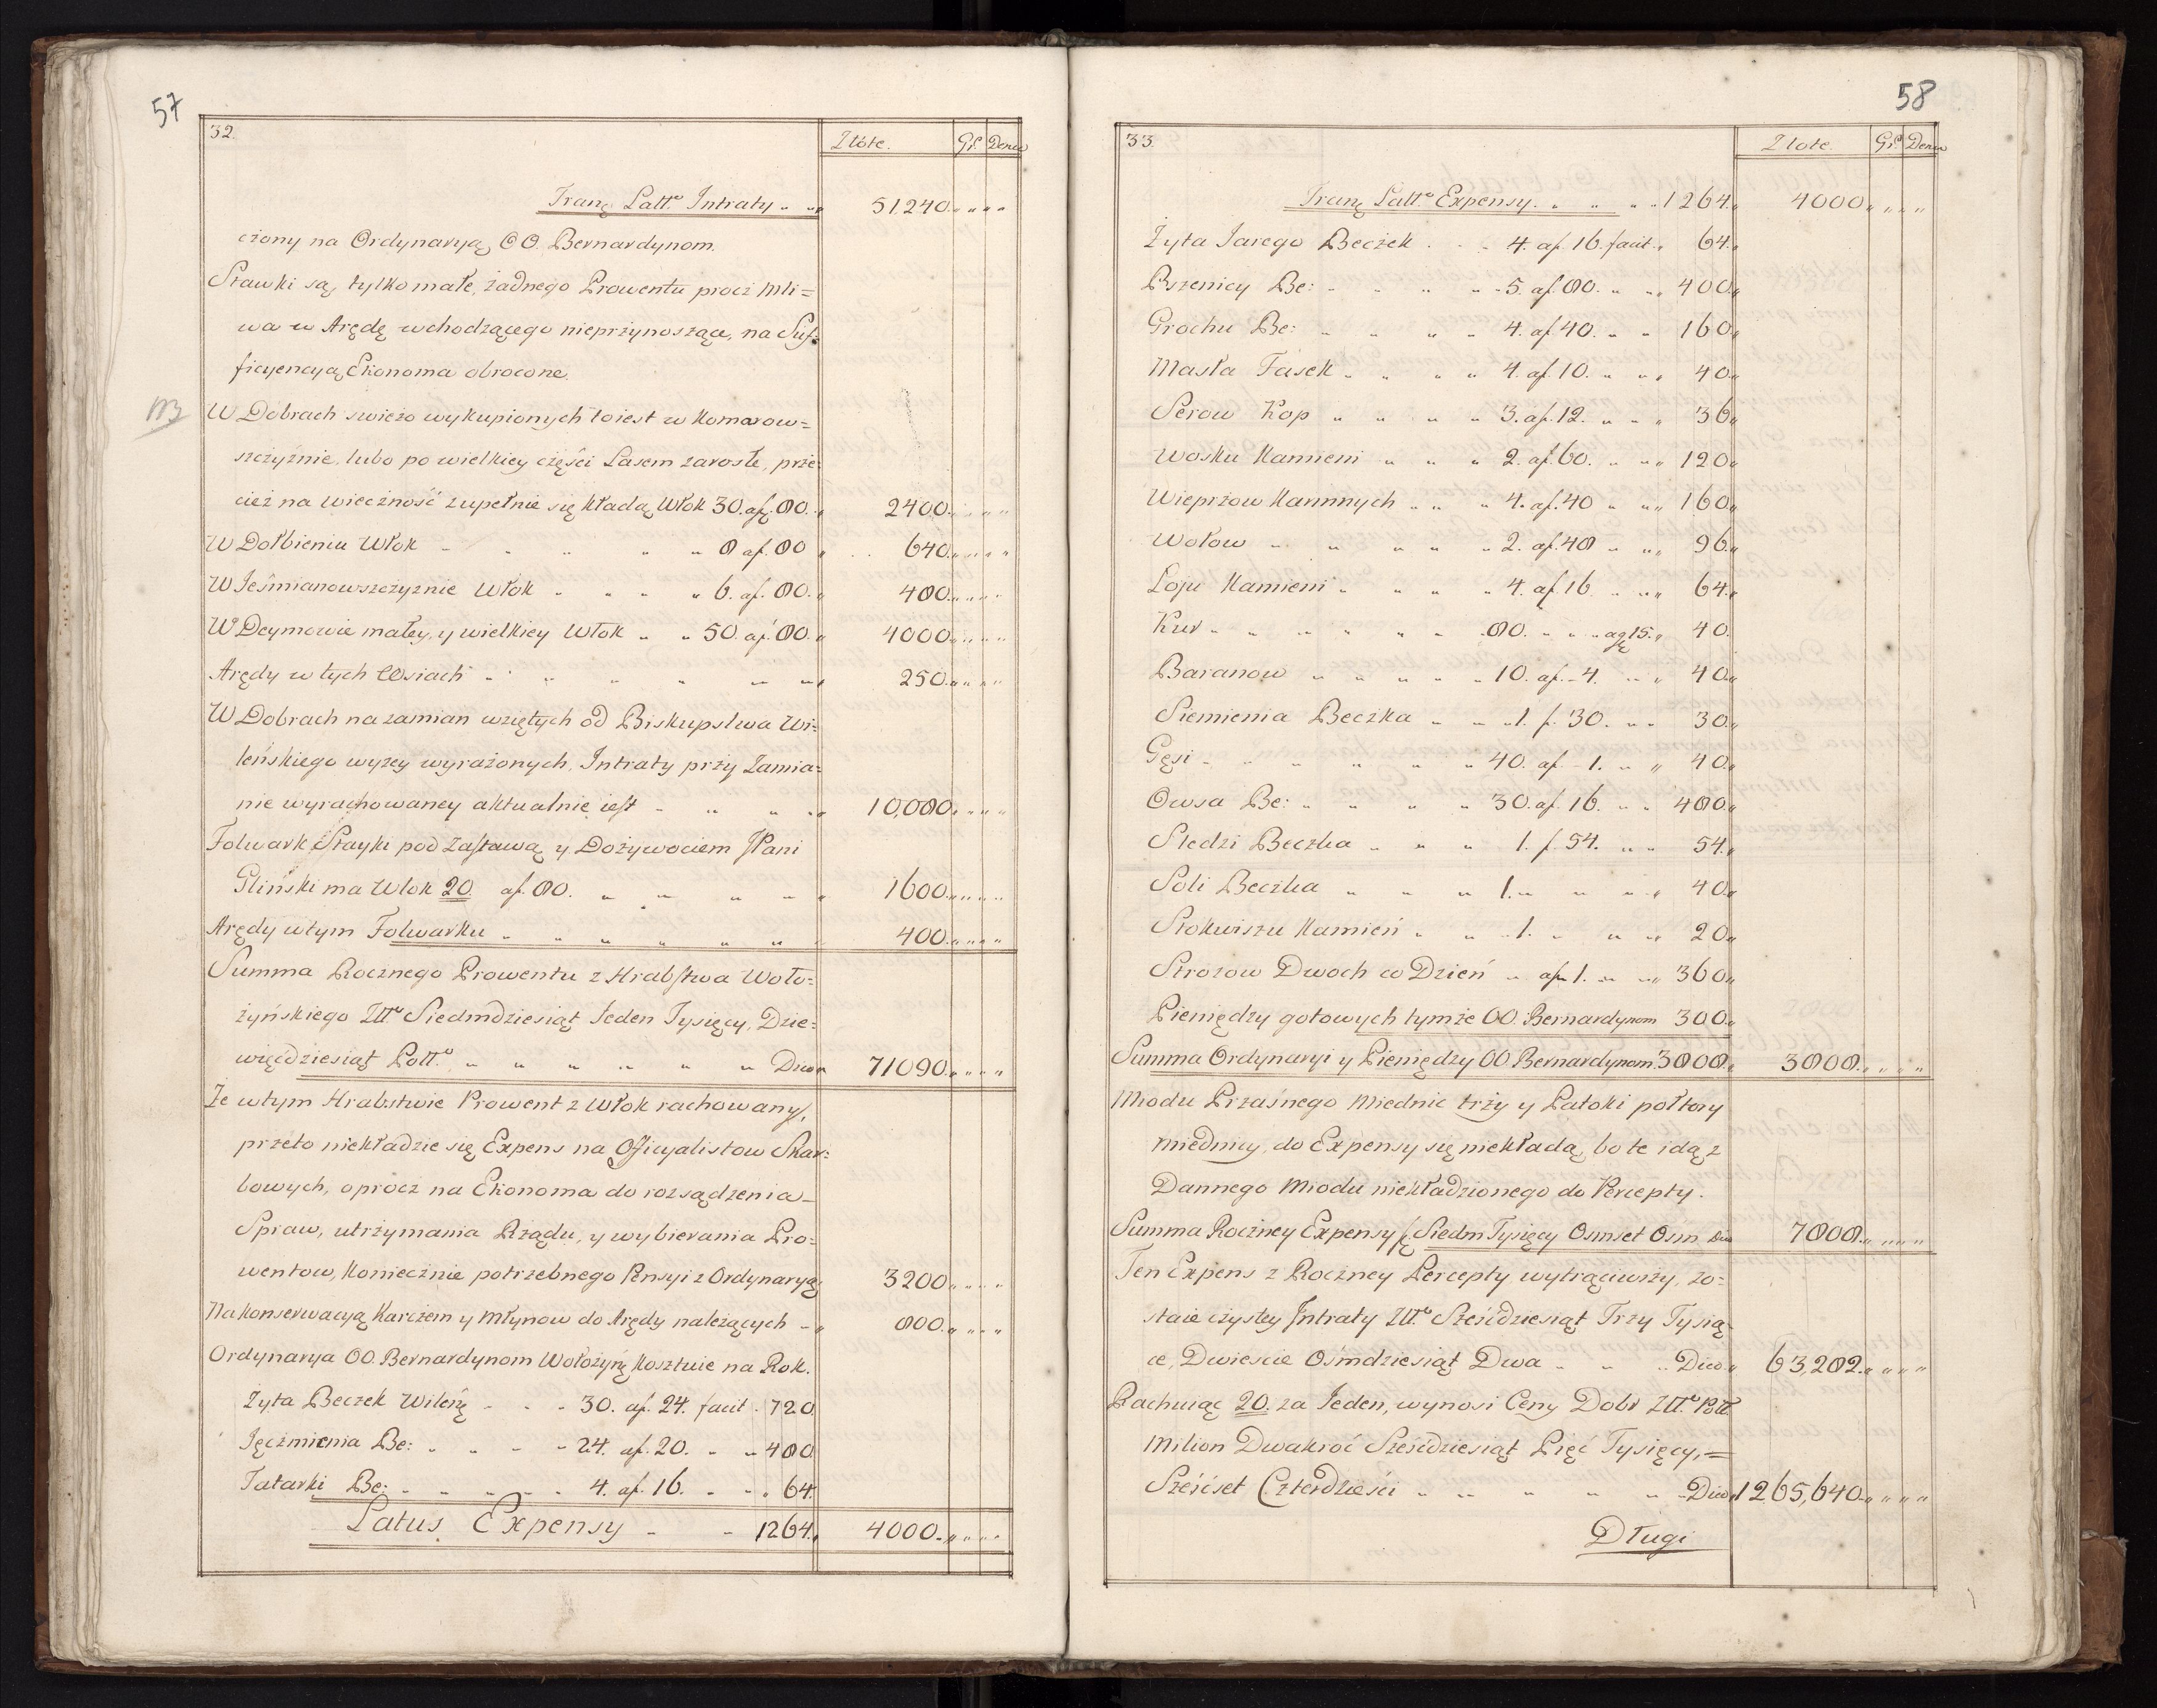 57
32.
Złote. Gr. Dena
Tranz Latt.o Intraty 51240.
czony na Ordynaryą OO. Bernardynom.
Stawki są tylko małe, żadnego Prowentu procz Mli=
wa w Arędę wchodzącego nieprzynoszące, na Suf=
ficyencyą Ekonoma obrocone.
NB
W Dobrach swieżo wykupionych to iest w Komarow=
szczyźnie, lubo po wielkiey części Lasem zarosłe, prze=
cież na wieczność zupełnie się kładą Włok 30. af. 80. 2400.
W Dołbieniu Włok 8 af. 80 640.
W Jeśmianowszczyznie Włok 6. af. 80. 480.
W Deymowie małey, y wielkiey Włok 50. af. 80. 4000.
Arędy w tych Wsiach 250.
W Dobrach na zamian wziętych od Biskupstwa Wi=
leńskiego wyżey wyrażonych, Intraty przy Zamia=
nie wyrachowaney aktualnie iest 10,080.
Folwark Stayki pod Zastawą y Dożywociem JPani
Gliński ma Włok 20. af. 80. 1600.
Arędy w tym Folwarku 400.
Summa Rocznego Prowentu z Hrabstwa Woło=
żyńskiego Złł.o Siedmdziesiąt Jeden Tysięcy, Dzie=
więćdziesiąt Poll.o Dico 71090.
Że w tym Hrabstwie Prowent z Włok rachowany,
przeto niekładzie się Expens na Officyalistow Skar=
bowych, oprocz na Ekonoma do rozsądzenia
Spraw, utrzymania Rządu, y wybierania Pro=
wentow, koniecznie potrzebnego Pensyi z Ordynaryą 3200.
Na konserwacyą Karczem y Młynow do Arędy należących 800.
Ordynarya OO. Bernardynom Wołożyń: kosztuie na Rok.
Żyta Beczek Wileń: 30. af. 24. facit 720.
Jęczmienia Be: 24. af. 20. 480
Tatarki Be: 4. af. 16. 64.
Latus Expensy 1264. 4000.
58
33.
Złote. Gr. Dena
Tranz Latt.o Expensy. 1264. 4000
Żyta Jarego Beczek 4. af. 16. facit 64.
Pszenicy Be: 5. af. 80. 400.
Grochu Be: 4. af. 40. 160.
Masła Fasek 4. af. 10. 40.
Serow Kop 3. af. 12. 36.
Wosku Kamieni 2. af. 60. 120.
Wieprzow Karmnych 4. af. 40 160.
Wołow 2. af. 48 96.
Łoju Kamieni 4. af. 16 64.
Kur 80. ag 15. 40.
Baranow 10. af. 4. 40.
Siemienia Beczka 1. f. 30. 30.
Gęsi 40. af. 1. 40.
Owsa Be: 30. af. 16. 480.
Sledzi Beczka 1. f. 54. 54.
Soli Beczka 1. 40.
Stokwiszu Kamień 1. 20.
Strożow Dwoch co Dzień af. 1. 360.
Pieniędzy gotowych tymże OO. Bernardynom 300.
Summa Ordynaryi y Pieniędzy OO. Bernardynom 3808. 3808.
Miodu Przaśnego Miednic trzy y Patoki połtory
miednicy, do Expensy się niekładą, bo te idą z
Dannego Miodu niekładzionego do Percepty.
Summa Roczney Expensy f Siedm Tysięcy Osmset Osm Dico 7808.
Ten Expens z Roczney Percepty wytrąciwszy, zo=
staie czystey Intraty Złł.o Sześćdziesiąt Trzy Tysią=
ce, Dwieście Ośmdziesiąt Dwa Dico 63,282.
Rachuiąc 20. za Jeden, wynosi Ceny Dobr Złł.o Poll.
Milion Dwakroć Sześćdziesiąt Pięć Tysięcy,=
Sześćset Czterdzieści Dico 1265,640.
Długi